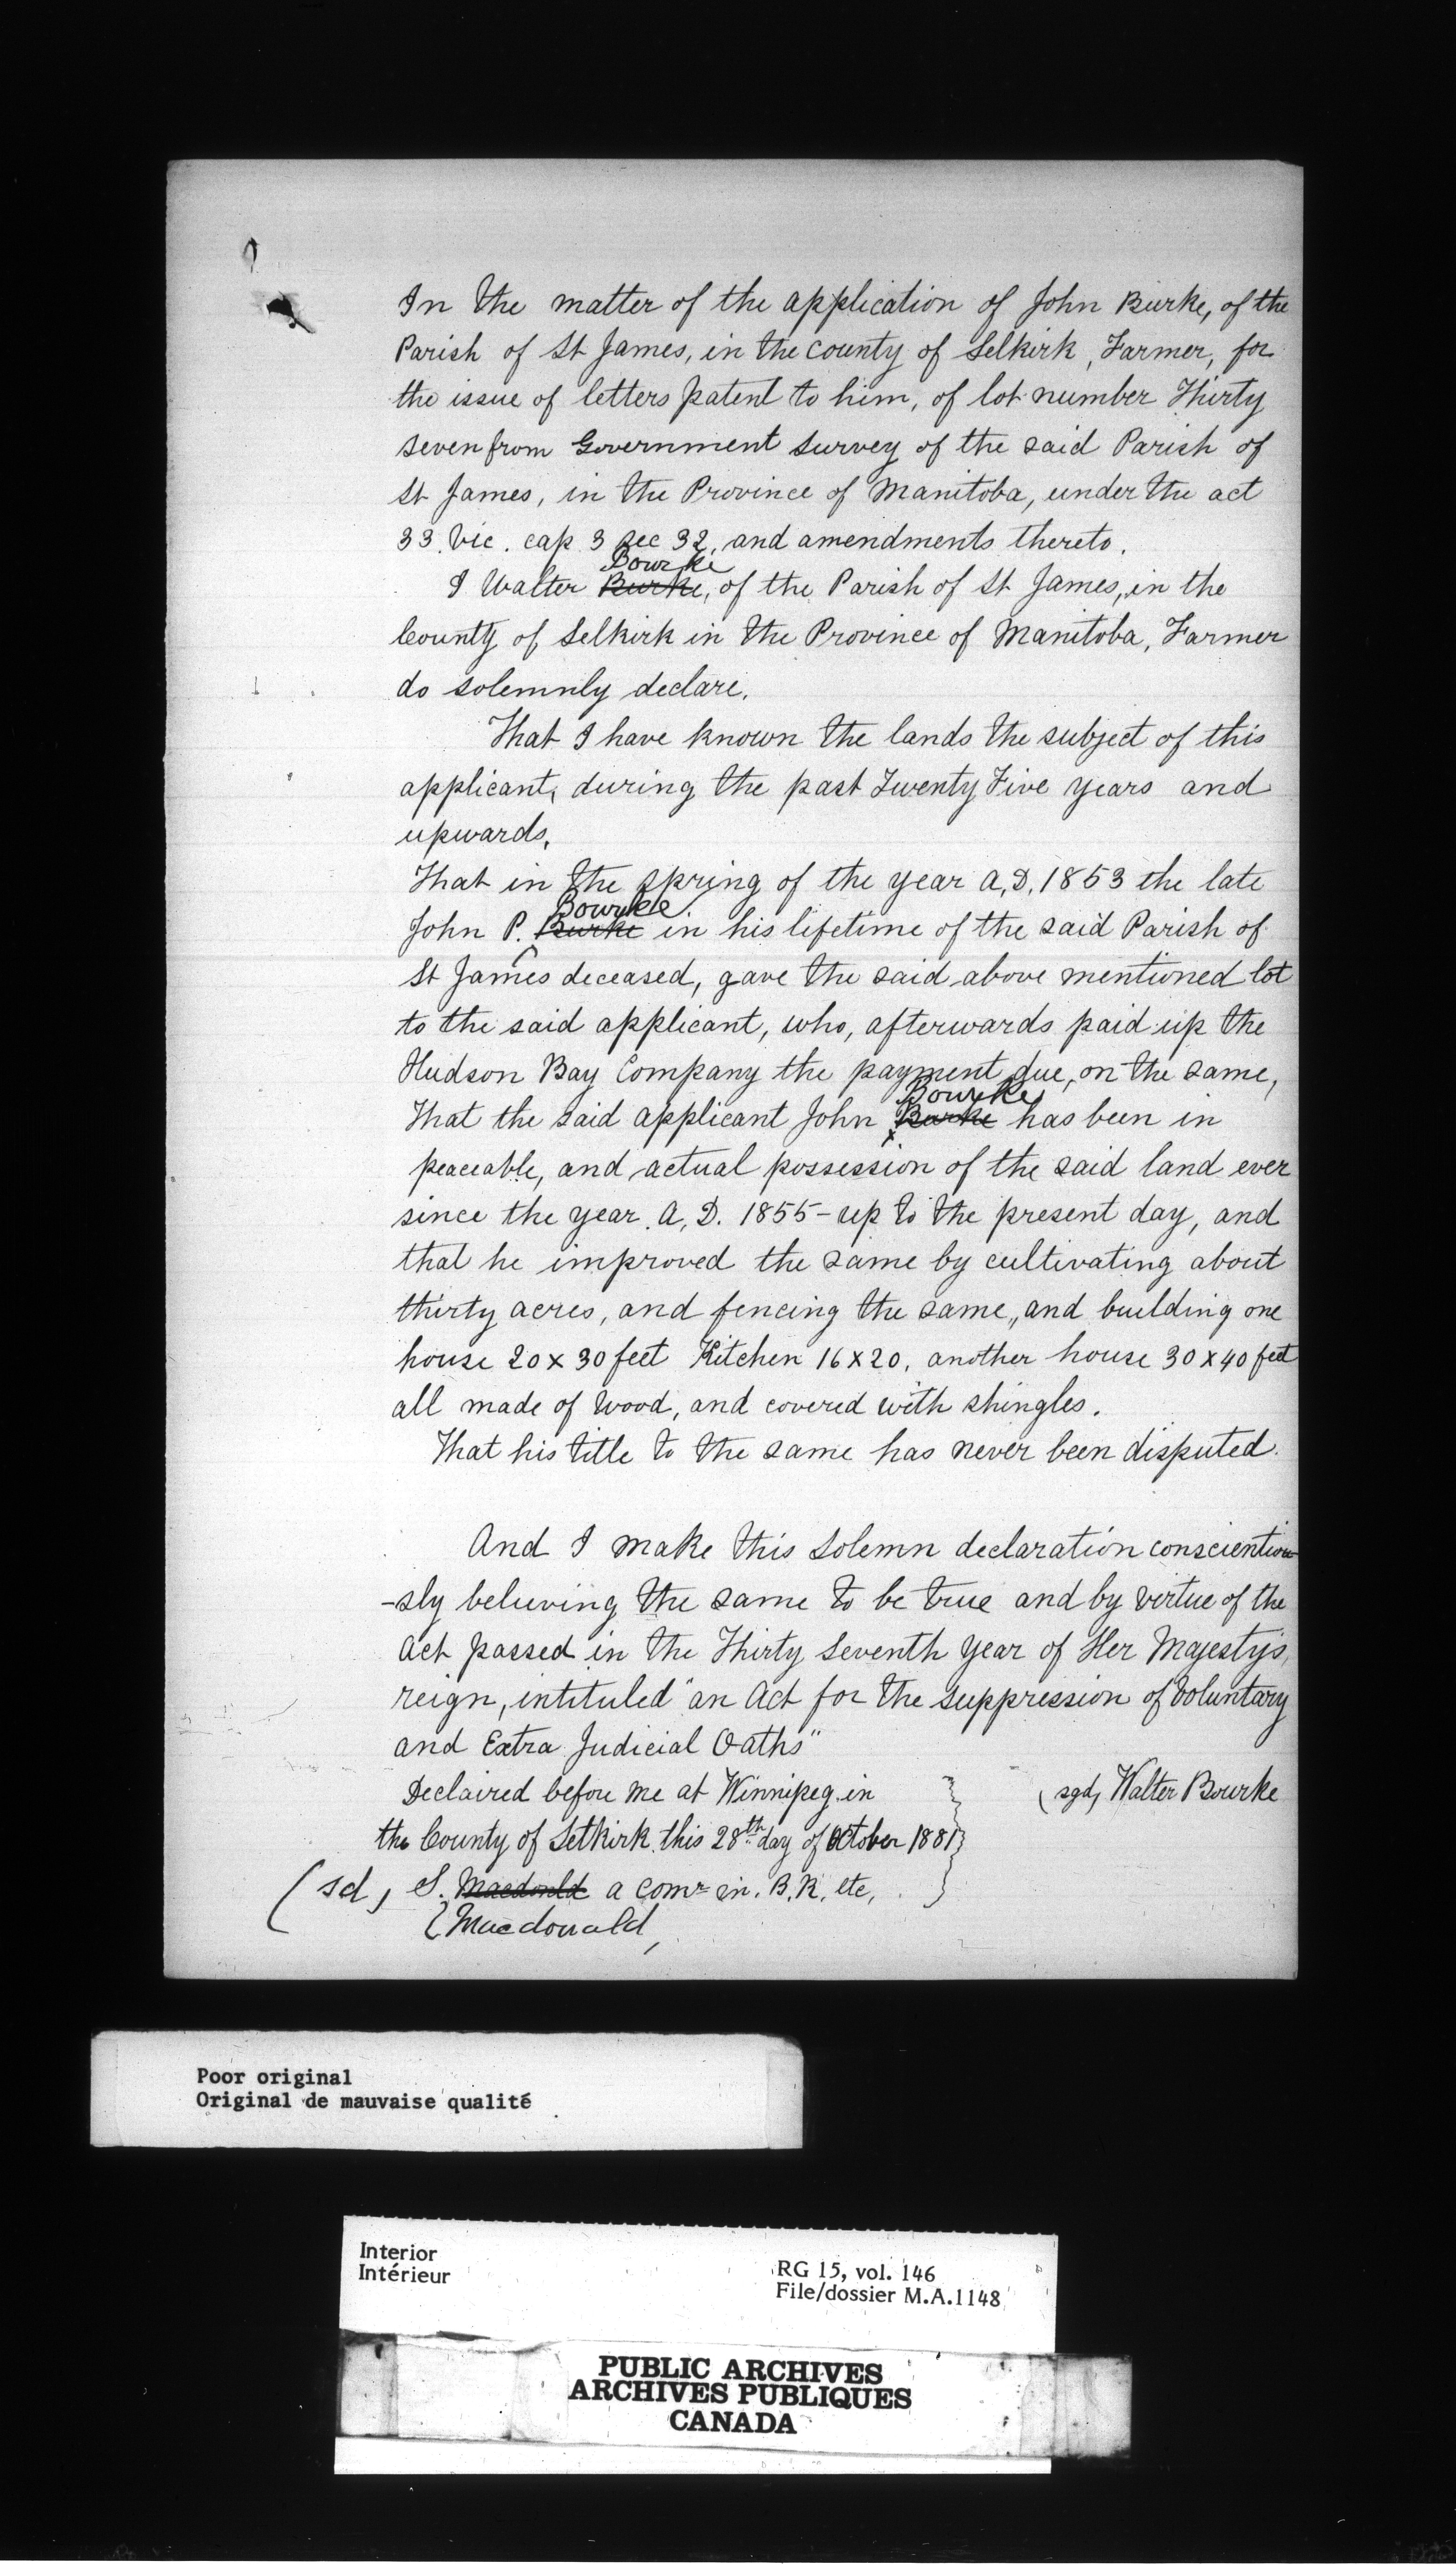 In the matter of the application of John Burke, of the
Parish of St James, in the county of Selkirk, Farmer, for
the issue of letters patent to him, of lot number Thirty
seven from Government survey of the said Parish of
St James, in the Province of Manitoba, under the act
33. Vic. cap 3 sec 32, and amendments thereto.
Bourke
I Walter Burke, of the Parish of St James, in the
County of Selkirk in the Province of Manitoba, Farmer
do solemnly declare.
That I have known the lands the subject of this
applicant, during the past Twenty Five years and
upwards.
That in the spring of the year A.D. 1853 the late
Bourke
John P. Burke in his lifetime of the said Parish of
St James deceased, gave the said above mentioned lot
to the said applicant, who, afterwards paid up the
Hudson Bay Company the payment due, on the same,
Bourke
That the said applicant John Burke has been in
peaceable, and actual possession of the said land ever
since the year A.D. 1855 - up to the present day, and
that he improved the same by cultivating about
thirty acres, and fencing the same, and building one
house 20 x 30 feet Kitchen 16 x 20, another house 30 x 40 feet
all made of wood, and covered with shingles.
That his title to the same has never been disputed.
And I make this solemn declaration conscientiou
-sly believing the same to be true and by virtue of the
Act passed in the Thirty Seventh year of Her Majesty's
reign, intituled "an Act for the suppression of Voluntary
and Extra Judicial Oaths"
Declaired before me at Winnipeg in
(sgd, Walter Bourke
the County of Selkirk this 28th day of October 1881
(sd, S. Macdonald a comr in. B.R, etc,
Macdonald,
Poor original
Original de mauvaise qualité
Interior
Intérieur
RG 15, vol. 146
File/dossier M.A.1148
PUBLIC ARCHIVES
ARCHIVES PUBLIQUES
CANADA